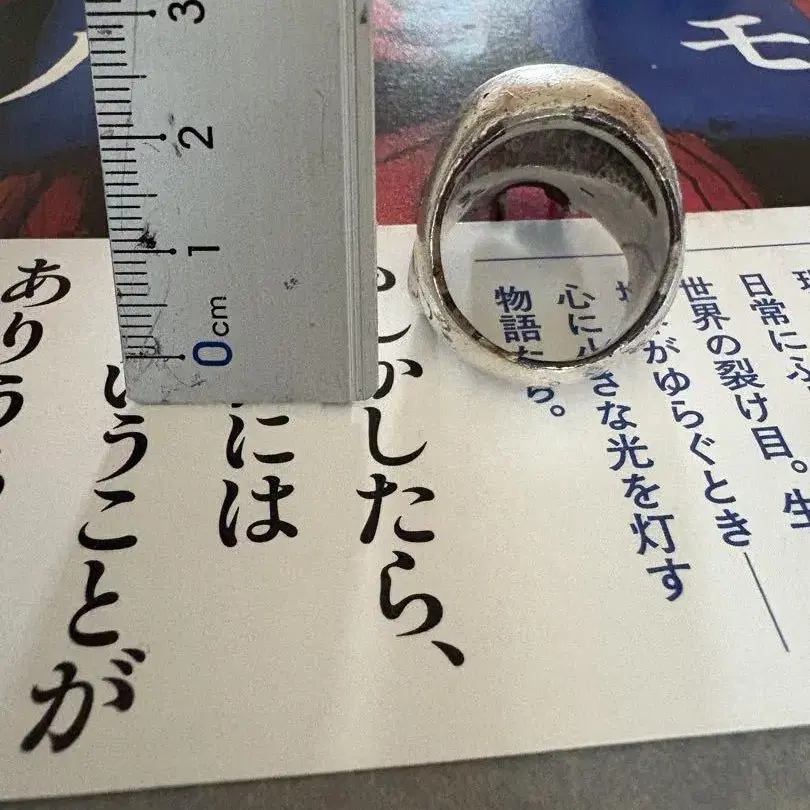 モ
日常にふ
世界の裂け目。生
がゆらぐとき——
心に小さな光を灯す
物語たち。
しかしたら、
には
いうことが
ありうる
3
2
1
0cm